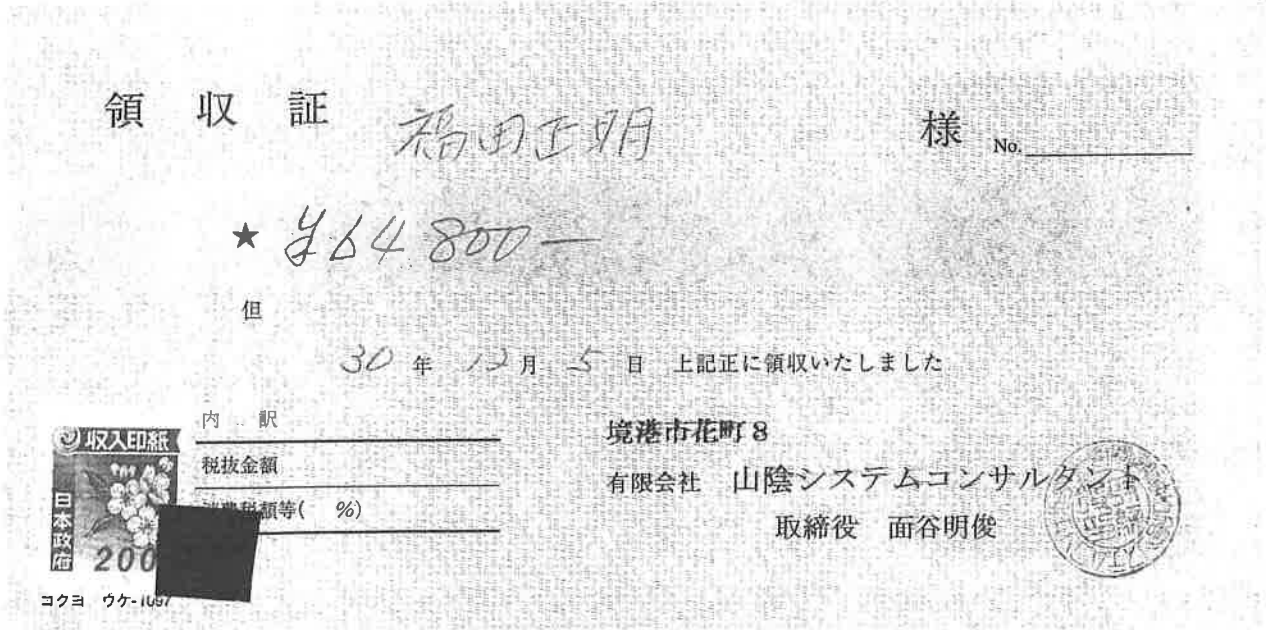 領収証 福田正明 様 No.
★ ¥64800-
但
30年 12月 5日 上記正に領収いたしました
内訳
税抜金額
消費税額等( %)
収入印紙
日本政府
200
コクヨ ウケ-1097
境港市花町8
有限会社 山陰システムコンサルタント
取締役 面谷明俊